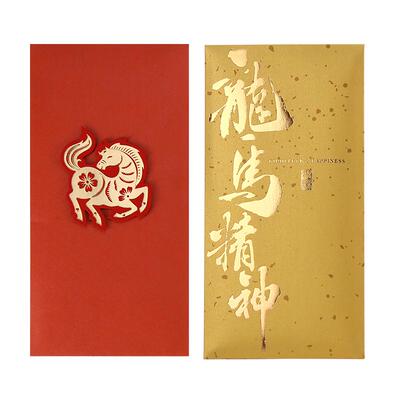 龍馬精神
GOOD LUCK & HAPPINESS